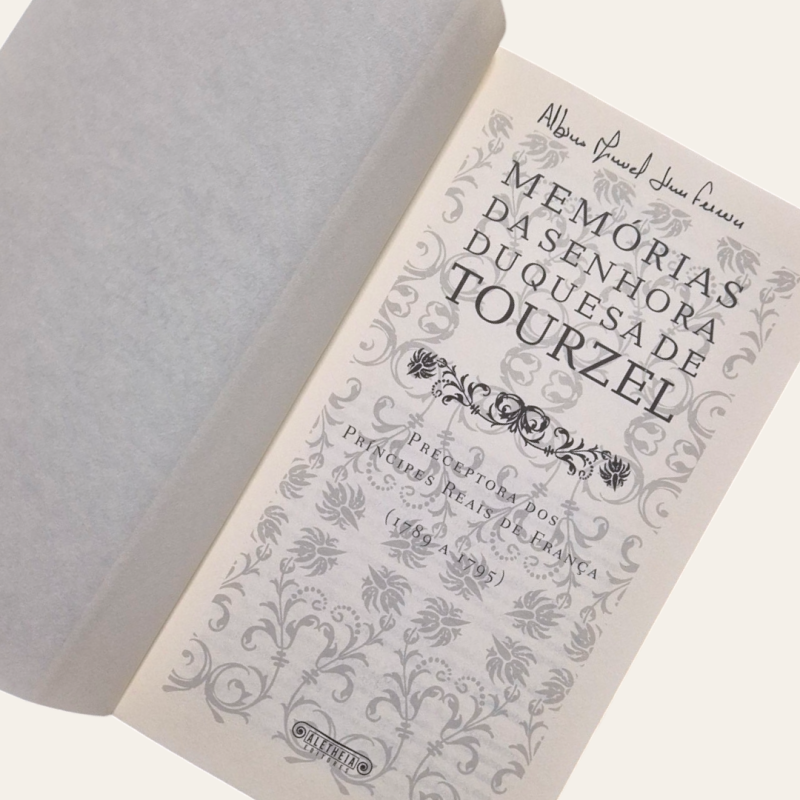 Manuel
MEMÓRIAS
DA SENHORA
DUQUESA DE
TOURZEL
PRECEPTORA DOS
PRÍNCIPES REAIS DE FRANÇA
(1789 A 1795)
ALETHEIA
EDITORES